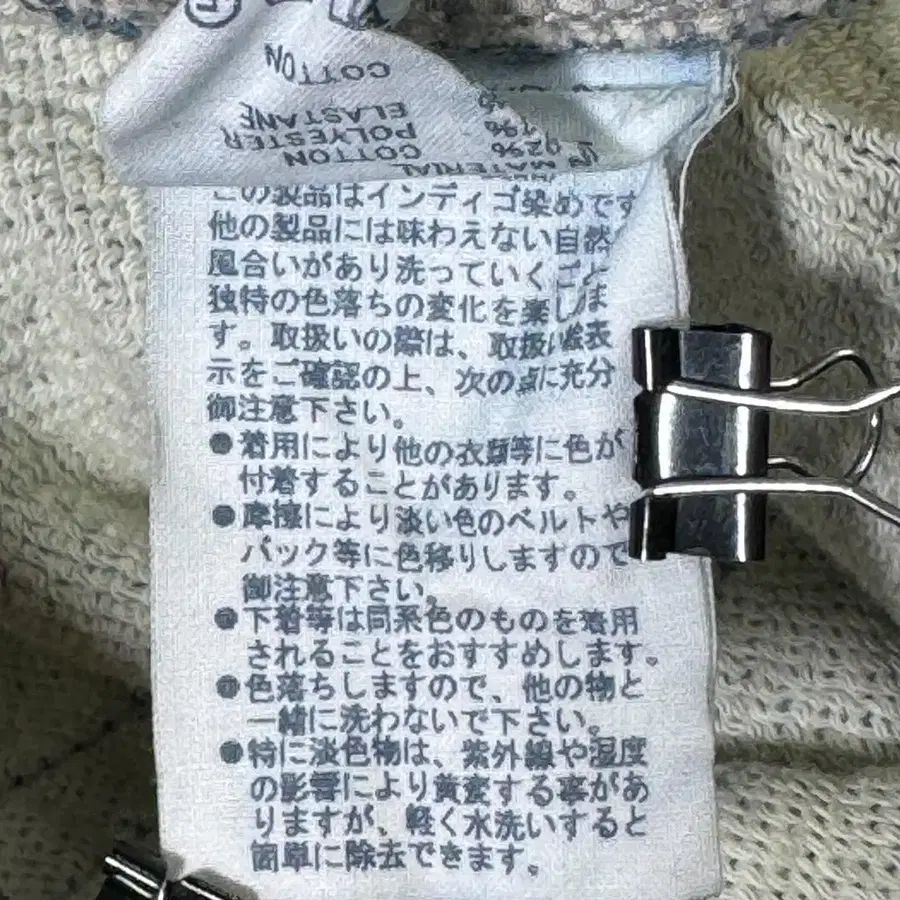 COTTON
ELASTANE
POLYESTER
COTTON
MATERIAL
この製品はインディゴ染めです
他の製品には味わえない自然
風合いがあり洗っていくごと
独特の色落ちの変化を楽しま
す。取扱いの際は、取扱い絵表
示をご確認の上、次の点に充分
御注意下さい。
●着用により他の衣類等に色が
付着することがあります。
●摩擦により淡い色のベルトや
バック等に色移りしますので
御注意下さい。
●下着等は同系色のものを着用
されることをおすすめします。
●色落ちしますので、他の物と
一緒に洗わないで下さい。
●特に淡色物は、紫外線や湿度
の影響により黄変する事があ
りますが、軽く水洗いすると
簡単に除去できます。